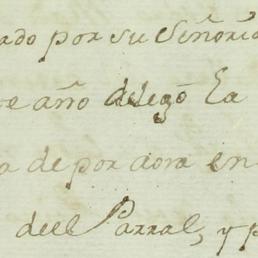 ado por su Señoría
e año delegō La
a de por aora en
deel Parral, y p